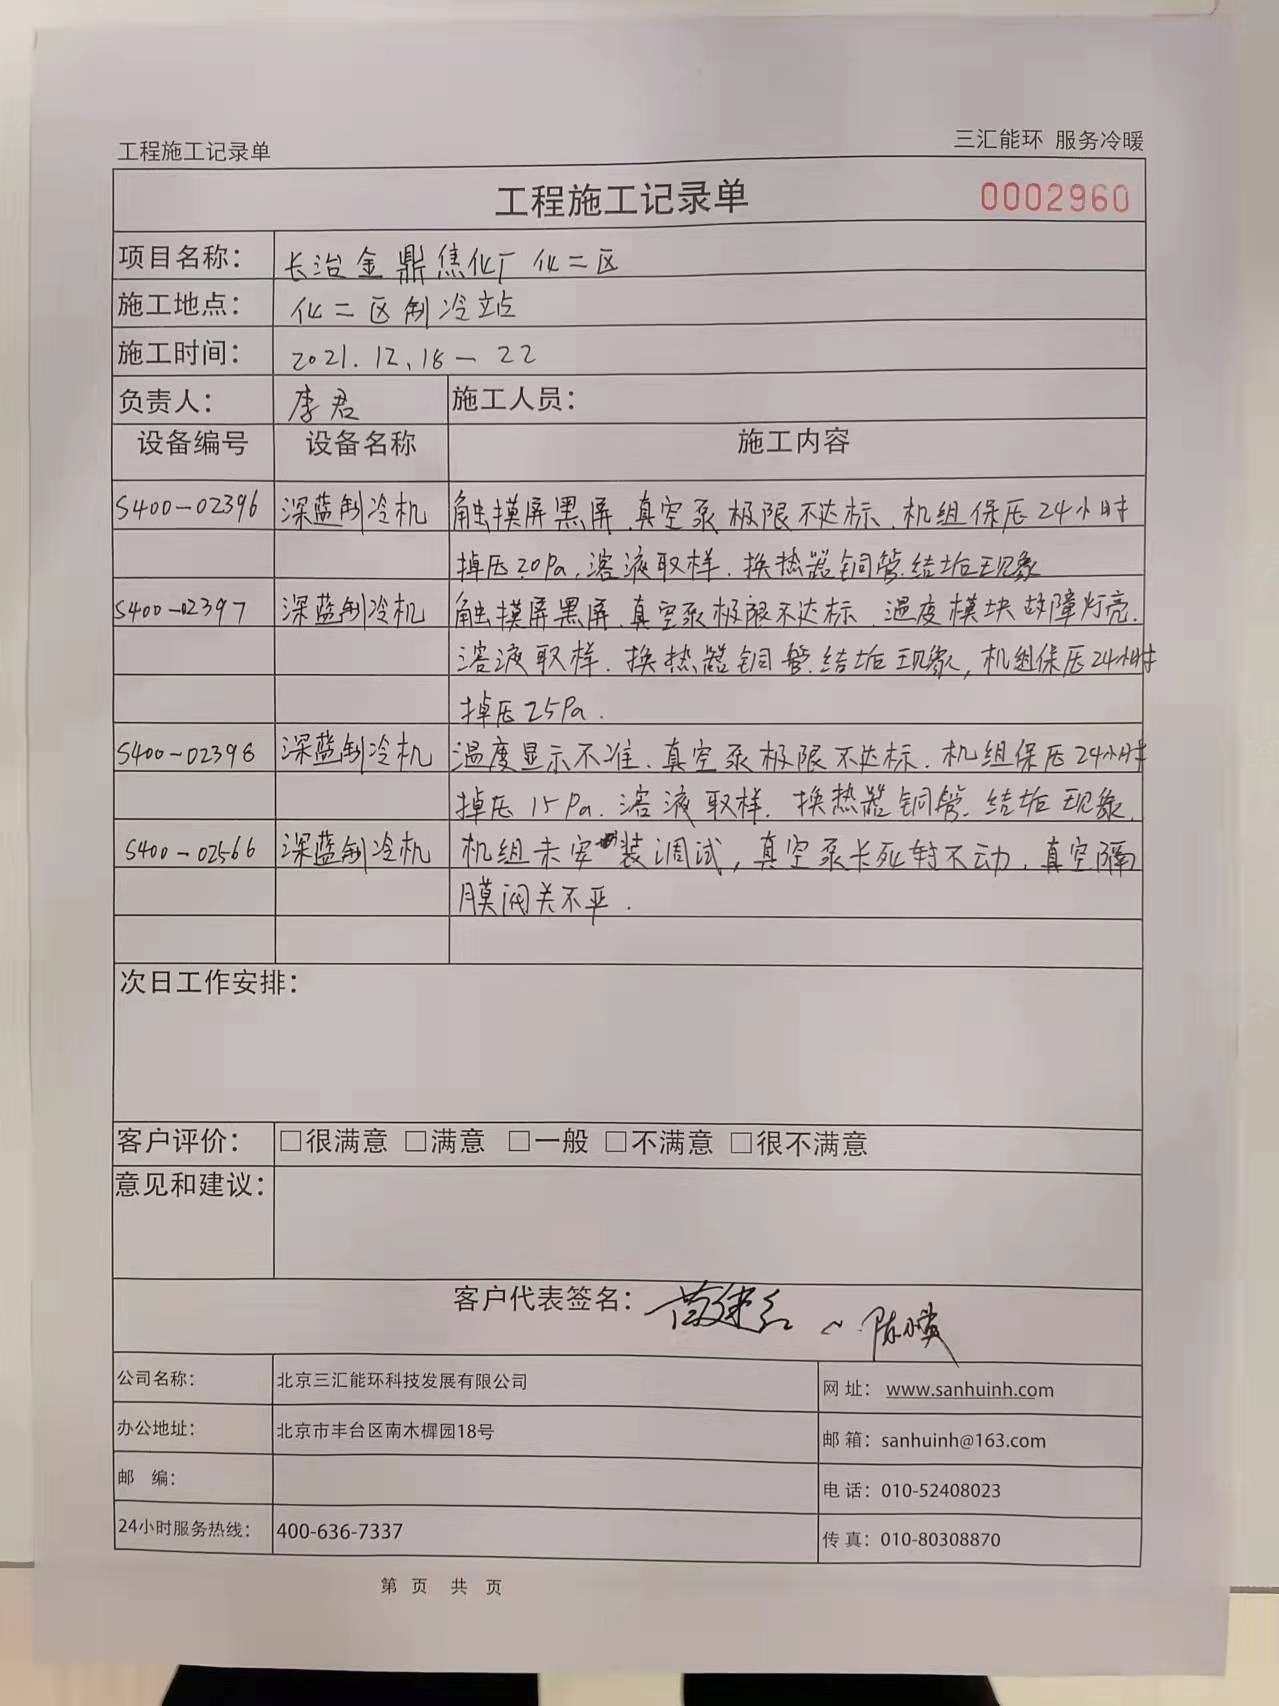 工程施工记录单
三汇能环 服务冷暖
工程施工记录单
0002960
项目名称: 长治金鼎焦化厂化二区
施工地点: 化二区制冷站
施工时间: 2021.12.18-22
负责人: 李君 施工人员:
设备编号 设备名称 施工内容
S400-02396 深蓝制冷机 触摸屏黑屏.真空泵极限不达标.机组保压24小时
掉压20Pa.溶液取样.换热器铜管.结垢现象
S400-02397 深蓝制冷机 触摸屏黑屏.真空泵极限不达标.温度模块故障灯亮.
溶液取样.换热器铜管.结垢现象,机组保压24小时
掉压25Pa.
S400-02398 深蓝制冷机 温度显示不准.真空泵极限不达标.机组保压24小时
掉压15Pa.溶液取样.换热器铜管.结垢现象.
S400-02566 深蓝制冷机 机组未安装调试,真空泵卡死转不动.真空隔
膜阀关不平.
次日工作安排:
客户评价: □很满意 □满意 □一般 □不满意 □很不满意
意见和建议:
客户代表签名:
公司名称: 北京三汇能环科技发展有限公司 网 址: www.sanhuinh.com
办公地址: 北京市丰台区南木樨园18号 邮 箱: sanhuinh@163.com
邮 编: 电 话: 010-52408023
24小时服务热线: 400-636-7337 传 真: 010-80308870
第 页 共 页